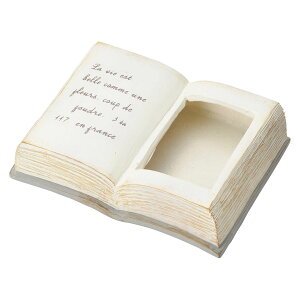 La vie est
belle comme une
fleurs coup de
foudre
117 en france